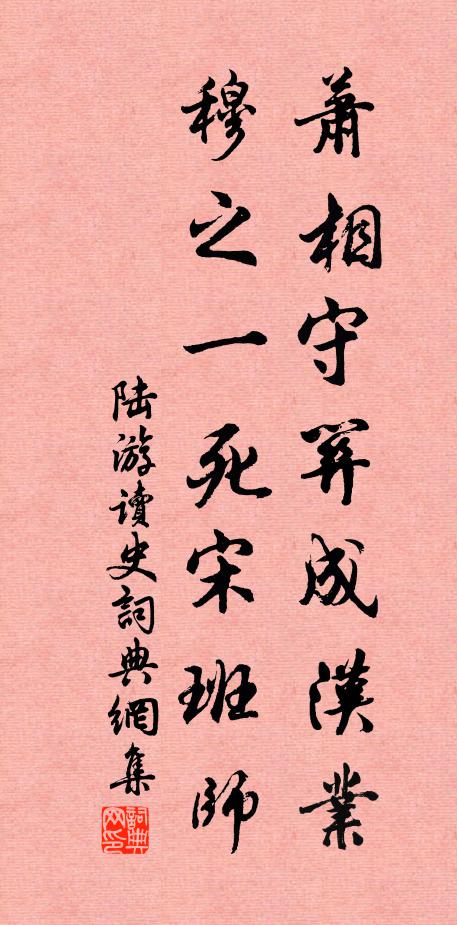 萧相守関成漢業
穆之一死宋班師
陆游讀史詞典網集
詞典网印